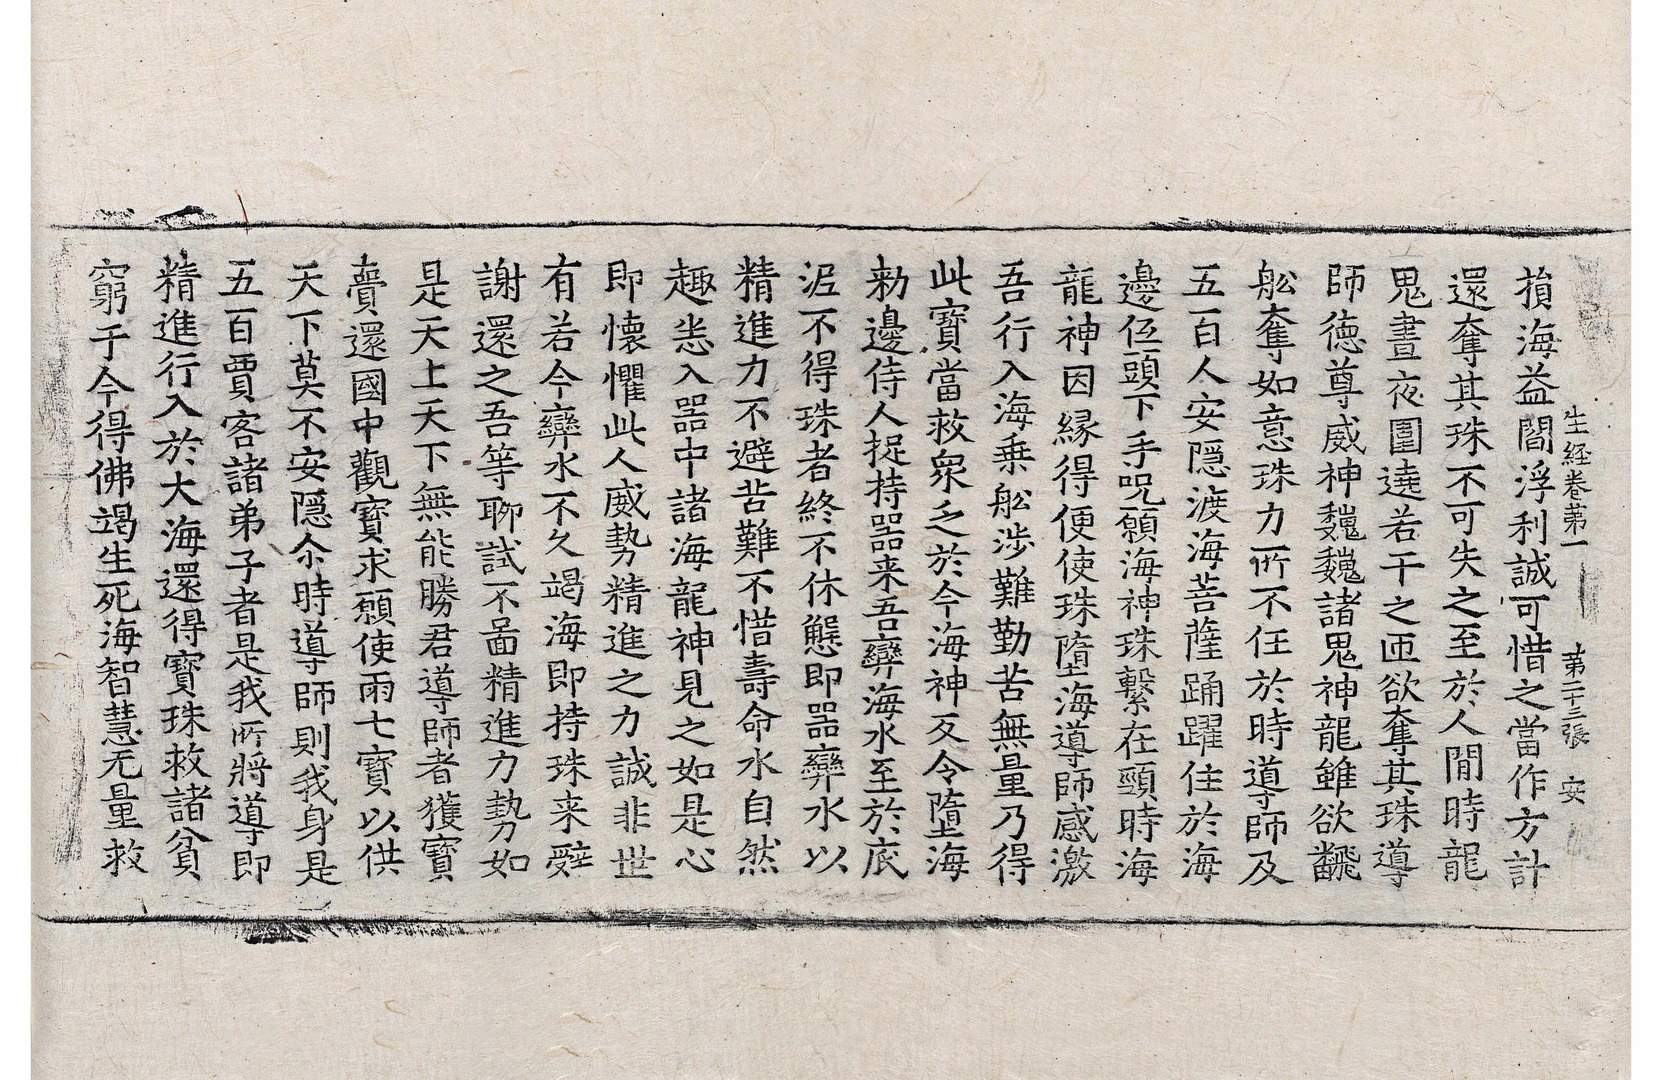 生経巻苐一　苐二十三張　安
損海益閻浮利誠可惜之當作方計
還奪其珠不可失之至於人閒時龍
鬼晝夜圍遶若干之匝欲奪其珠導
師徳尊威神巍巍諸鬼神龍雖欲飜
舩奪如意珠力所不任於時導師及
五百人安隠渡海菩薩踊躍住於海
邊伍頭下手呪願海神珠繫在頸時海
龍神因縁得便使珠墮海導師感激
吾行入海乗舩涉難勤苦無量乃得
此寶當救衆乏於今海神反令墮海
勑邊侍人捉持噐来吾㪻海水至於底
泥不得珠者終不休懈即噐㪻水以
精進力不避苦難不惜壽命水自然
趣悉入噐中諸海龍神見之如是心
即懷懼此人威勢精進之力誠非世
有若今㪻水不久竭海即持珠来辝
謝還之吾等聊試不啚精進力勢如
是天上天下無能勝君導師者獲寶
賷還國中觀寶求願使雨七寶以供
天下莫不安隠尒時導師則我身是
五百賈客諸弟子者是我所將導即
精進行入於大海還得寶珠救諸貧
窮于今得佛竭生死海智慧无量救